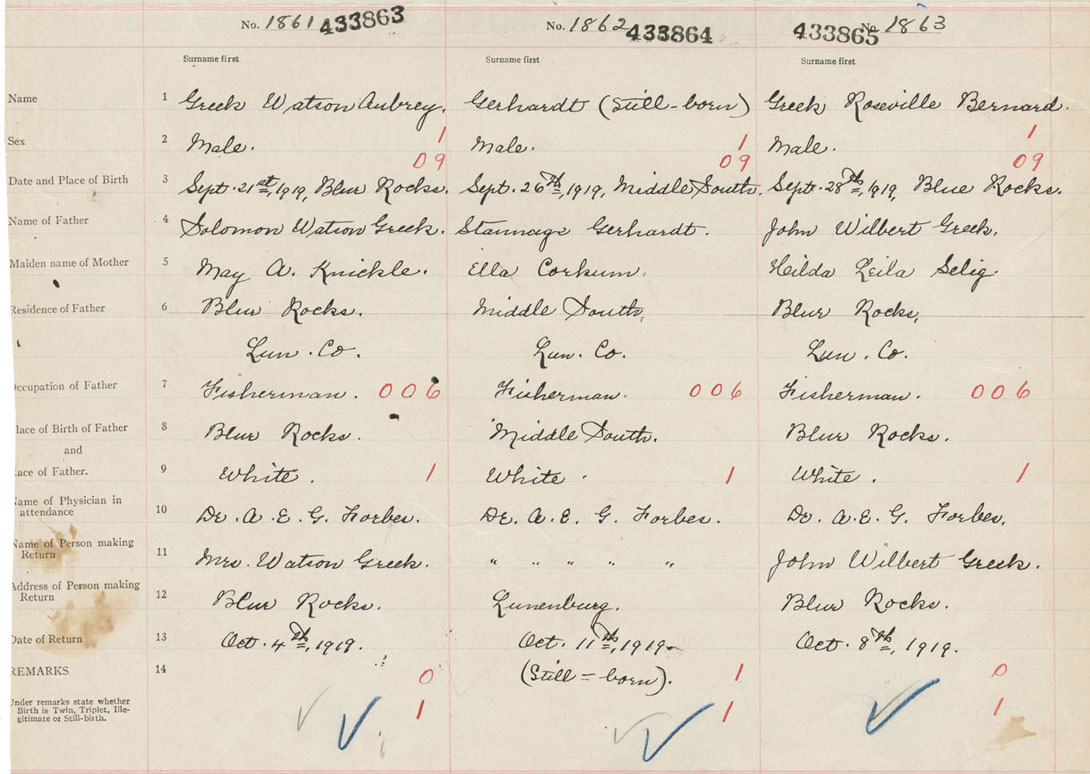 No. 1861 433863 No. 1862 433864 433865 No. 1863
Surname first Surname first Surname first
Name 1 Greek Watson Aubrey. Gerhardt (Still-born) Greek Roseville Bernard.
Sex 2 Male. 1 Male. 1 Male. 1
09 09 09
Date and Place of Birth 3 Sept. 21st, 1919, Blue Rocks. Sept. 26th, 1919, Middle South. Sept. 28th, 1919, Blue Rocks.
Name of Father 4 Solomon Watson Greek. Stannage Gerhardt. John Wilbert Greek.
Maiden name of Mother 5 May A. Knickle. Ella Corkum. Hilda Leila Selig.
Residence of Father 6 Blue Rocks. Middle South, Blue Rocks,
Lun. Co. Lun. Co. Lun. Co.
Occupation of Father 7 Fisherman. 006 Fisherman. 006 Fisherman. 006
Place of Birth of Father 8 Blue Rocks. Middle South. Blue Rocks.
and
Race of Father. 9 White. 1 White. 1 White. 1
Name of Physician in attendance 10 Dr. A. E. G. Forbes. Dr. A. E. G. Forbes. Dr. A. E. G. Forbes.
Name of Person making Return 11 Mrs. Watson Greek. " " " " " John Wilbert Greek.
Address of Person making Return 12 Blue Rocks. Lunenburg. Blue Rocks.
Date of Return 13 Oct. 4th, 1919. Oct. 11th, 1919. Oct. 8th, 1919.
REMARKS 14 0 (Still=born). 1 0
Under remarks state whether Birth is Twin, Triplet, Illegitimate or Still-birth. 1 1 1